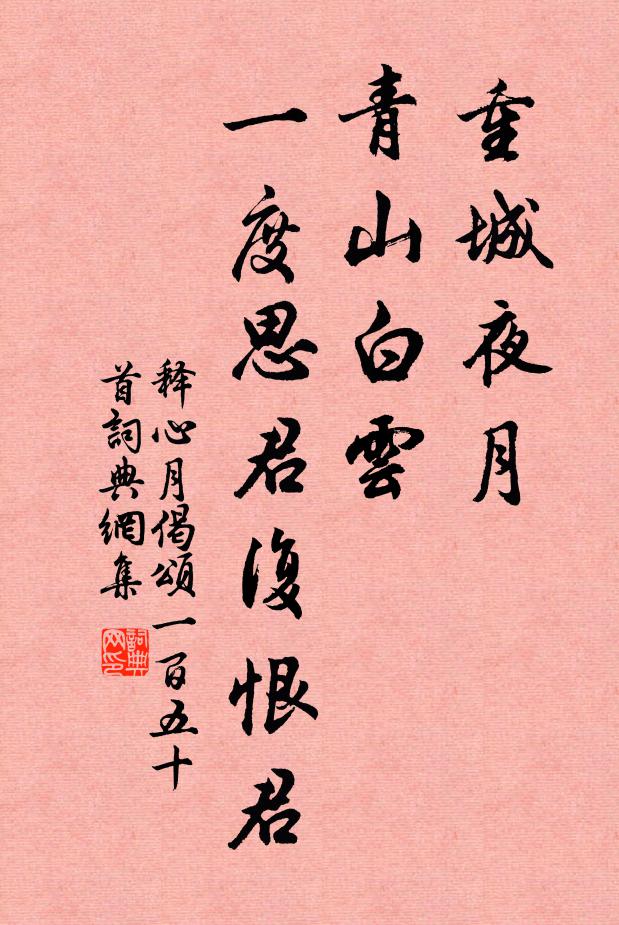 重城夜月
青山白雲
一度思君復恨君
释心月偈頌一百五十
首詞典網集
詞典
网印